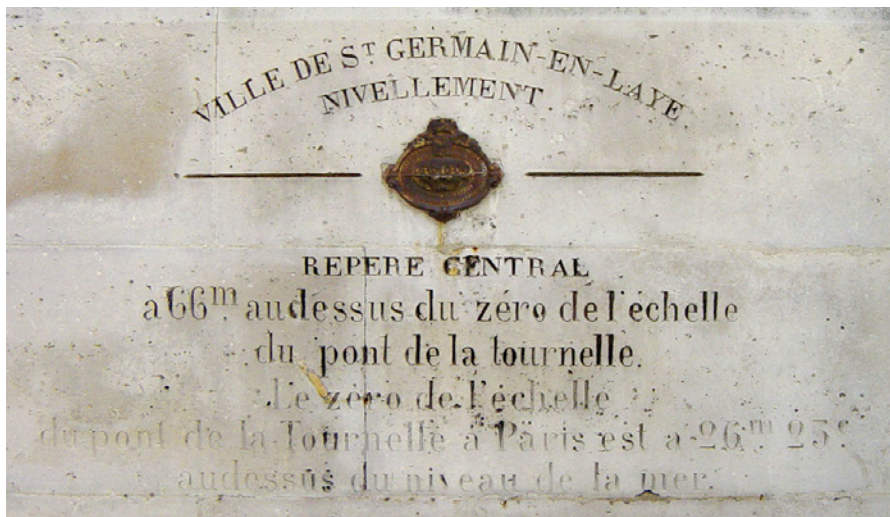 VILLE DE ST GERMAIN-EN-LAYE
NIVELLEMENT
REPERE CENTRAL
à 66m audessus du zéro de l'échelle
du pont de la tournelle.
Le zéro de l'échelle
du pont de la Tournelle à Paris est a 26m 25c
audessus du niveau de la mer.